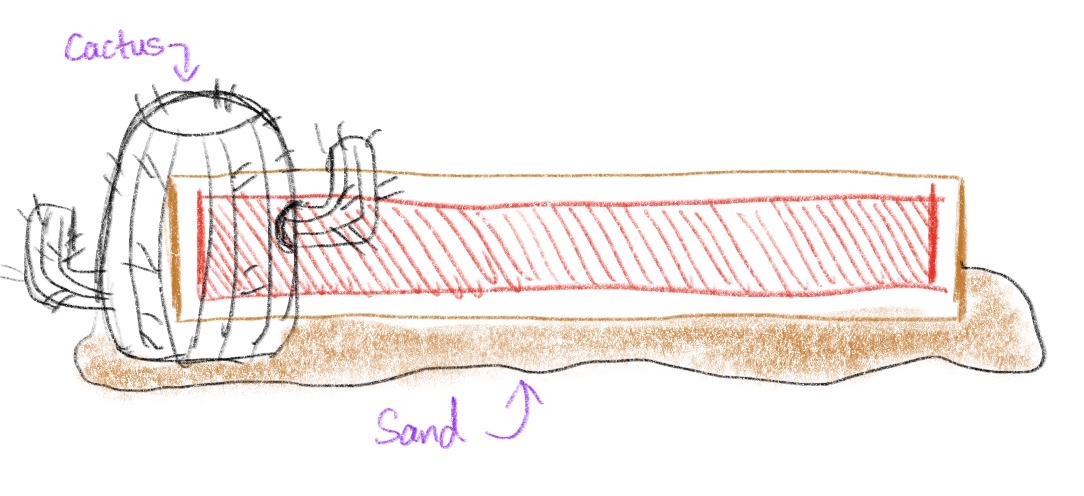 Cactus
Sand